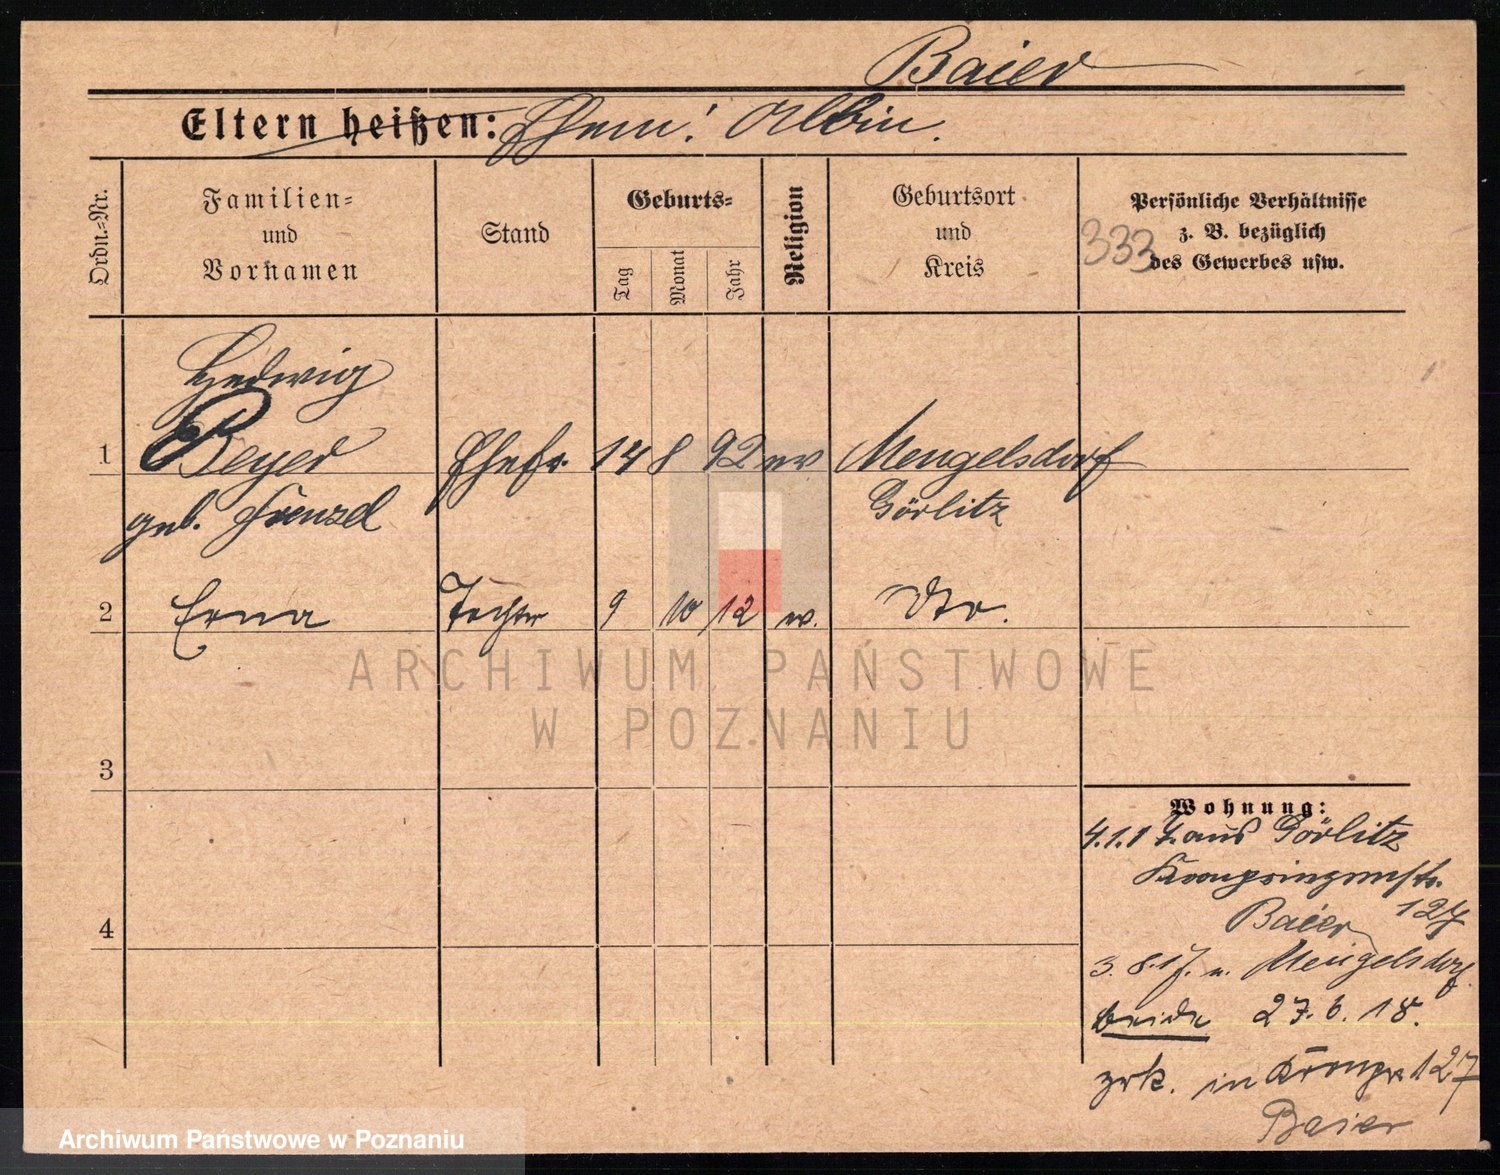 Baier
Eltern heißen: Ehem: Albin.
Ordn.-Nr.
Familien-
und
Vornamen
Stand
Geburts-
Tag
Monat
Jahr
Religion
Geburtsort
und
Kreis
Persönliche Verhältnisse
z. B. bezüglich
des Gewerbes usw.
333
Hedwig
1 Beyer Ehefr. 14 8 92 ev Mengelsdorf
geb. Frenzel Görlitz
2 Erna Tochter 9 10 12 ev. dto.
3
4
Wohnung:
4.1.17. aus Görlitz
Kronprinzenstr.
127
Baier
3.8.17. n. Mengelsdorf
beide 27.6.18.
zrk. in Kronpr 127
Baier
ARCHIWUM PAŃSTWOWE
W POZNANIU
Archiwum Państwowe w Poznaniu